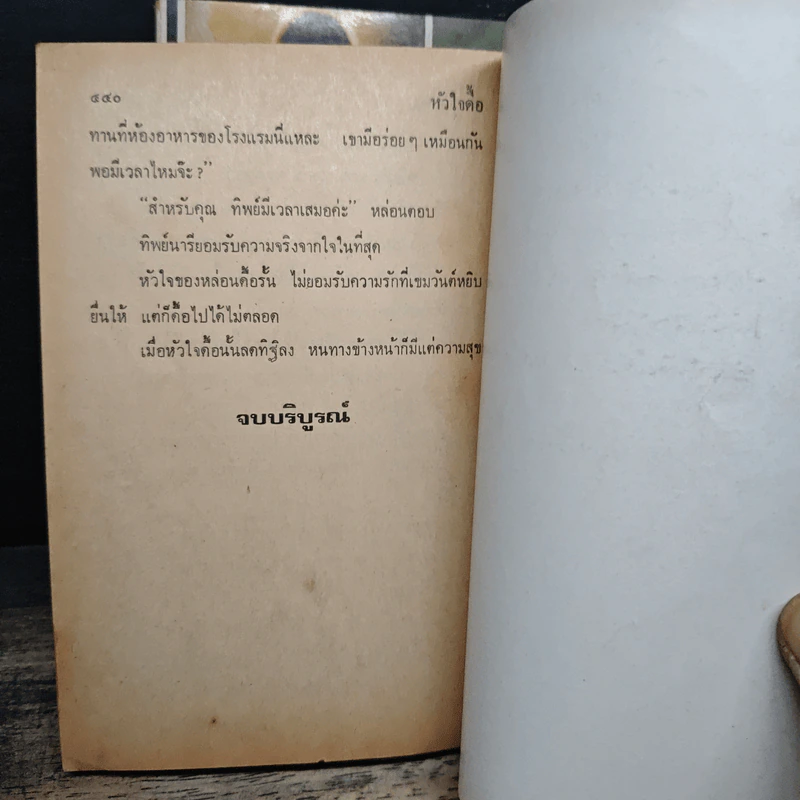 ๔๕๐ หัวใจดื้อ
ทานที่ห้องอาหารของโรงแรมนี่แหละ เขามีอร่อยๆ เหมือนกัน
พอมีเวลาไหมจ๊ะ ?”
“สำหรับคุณ ทิพย์มีเวลาเสมอค่ะ” หล่อนตอบ
ทิพย์นารียอมรับความจริงจากใจในที่สุด
หัวใจของหล่อนดื้อรั้น ไม่ยอมรับความรักที่เขมวันต์หยิบ
ยื่นให้ แต่ก็ดื้อไปได้ไม่ตลอด
เมื่อหัวใจดื้อนั้นลดทิฐิลง หนทางข้างหน้าก็มีแต่ความสุข
จบบริบูรณ์